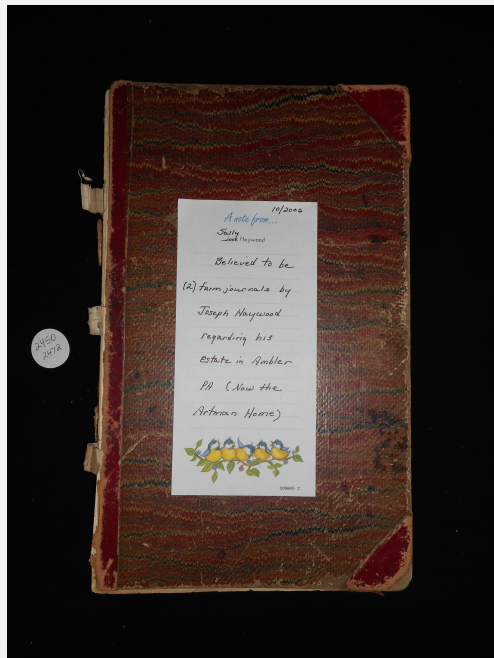 10/2006
A note from...
Sally
Jack Haywood
Believed to be
(2) farm journals by
Joseph Haywood
regarding his
estate in Ambler
PA (Now the
Artman Home)
2450
2472